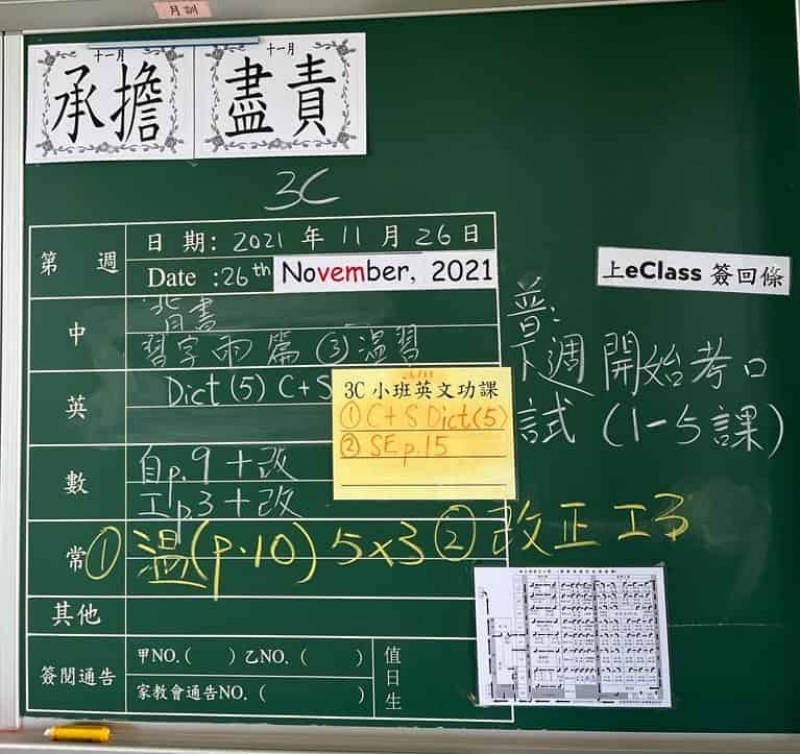 月訓
十一月
承擔
十一月
盡責
3C
第 週
日 期: 2021 年 11 月 26 日
Date :26th November, 2021
上eClass 簽回條
中
背書
習字兩篇 ③ 溫習
英
Dict (5) C+S
3C 小班英文功課
① C+S Dict(5)
② SE p.15
普:
下週開始考口
試 (1-5課)
數
自p.9 + 改
工p.3 + 改
常
① 溫(p.10) 5x3 ② 改正 工3
其他
簽閱通告
甲NO.( ) 乙NO.( )
家教會通告NO.( )
值日生